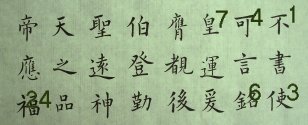 不書使
可言銘
皇運爰
膺覩後
伯登勤
聖遠神
天之品
帝應福
7 4 1
34 6 3